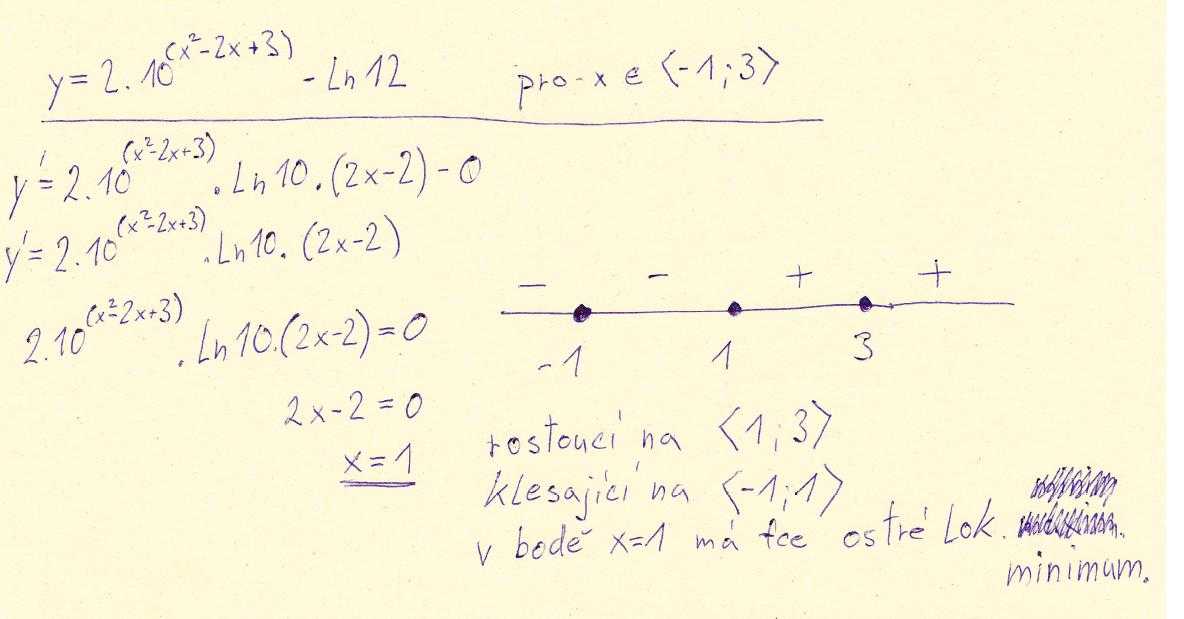 y = 2.10^(x²-2x+3) - Ln12 pro x ∈ ⟨-1;3⟩
y' = 2.10^(x²-2x+3) . Ln10.(2x-2) - 0
y' = 2.10^(x²-2x+3) . Ln10. (2x-2)
2.10^(x²-2x+3) . Ln10.(2x-2) = 0
2x-2 = 0
x = 1
- - + +
-1 1 3
rostoucí na ⟨1;3⟩
klesající na ⟨-1;1⟩
v bodě x=1 má fce ostré Lok.
minimum.